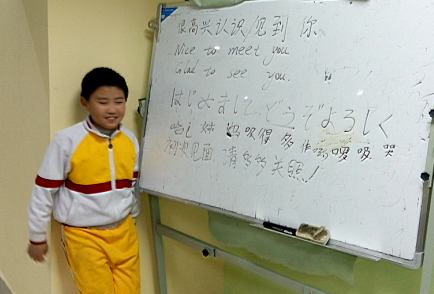 很高兴认识/见到 你.
Nice to meet you
Glad to see you.
はじめまして どうぞよろしく
哈 妹 得 多 嗖 吸 哭
初次见面 请多多关照!